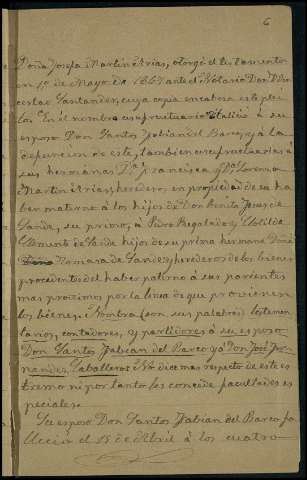 6
Doña Josefa Martin Arias, otorgó el testamento
en 1º de Mayo de 1867 ante el Notario Don
Santander, cuya copia encabeza este plie
go. En él nombra usufructuario vitalicio á su
esposo Don Santos Fabian del Barco, y á la
defuncion de este, tambien usufructuarias á
sus hermanas Dª Francisca y Dª Lorenza
Martin Arias, heredero, en propiedad de su ha
ber materno á los hijos de Don Benito Jesus de
Sande, su primo, á Pedro Regalado y Clotilde
Clemente de Sande hijos de su prima hermana Doña
Ramona de Sande y herederos de los bienes
procedentes del haber paterno á sus parientes
mas proximos por la linea de que provienen
los bienes. Nombra (son sus palabras) testamen
tarios, contadores, y partidores á su esposo
Don Santos Fabian del Barco y á Don José Fer
nandez Caballero. No dice mas respecto de este es
tremo ni por tanto les concede facultades es
peciales.
Su esposo Don Santos Fabian del Barco fa
lleció el 15 de Abril á los cuatro